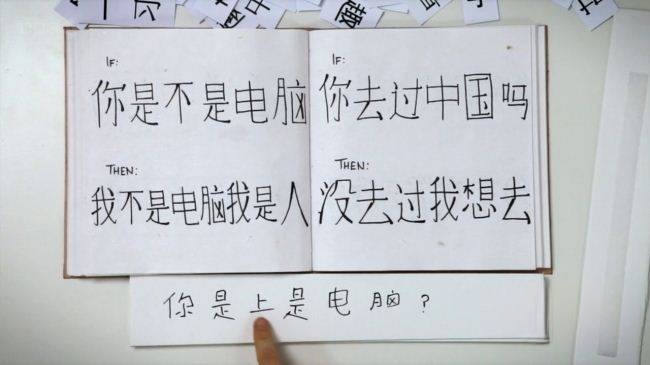 IF:
你是不是电脑
THEN:
我不是电脑我是人
IF:
你去过中国吗
THEN:
没去过我想去
你是上是电脑?